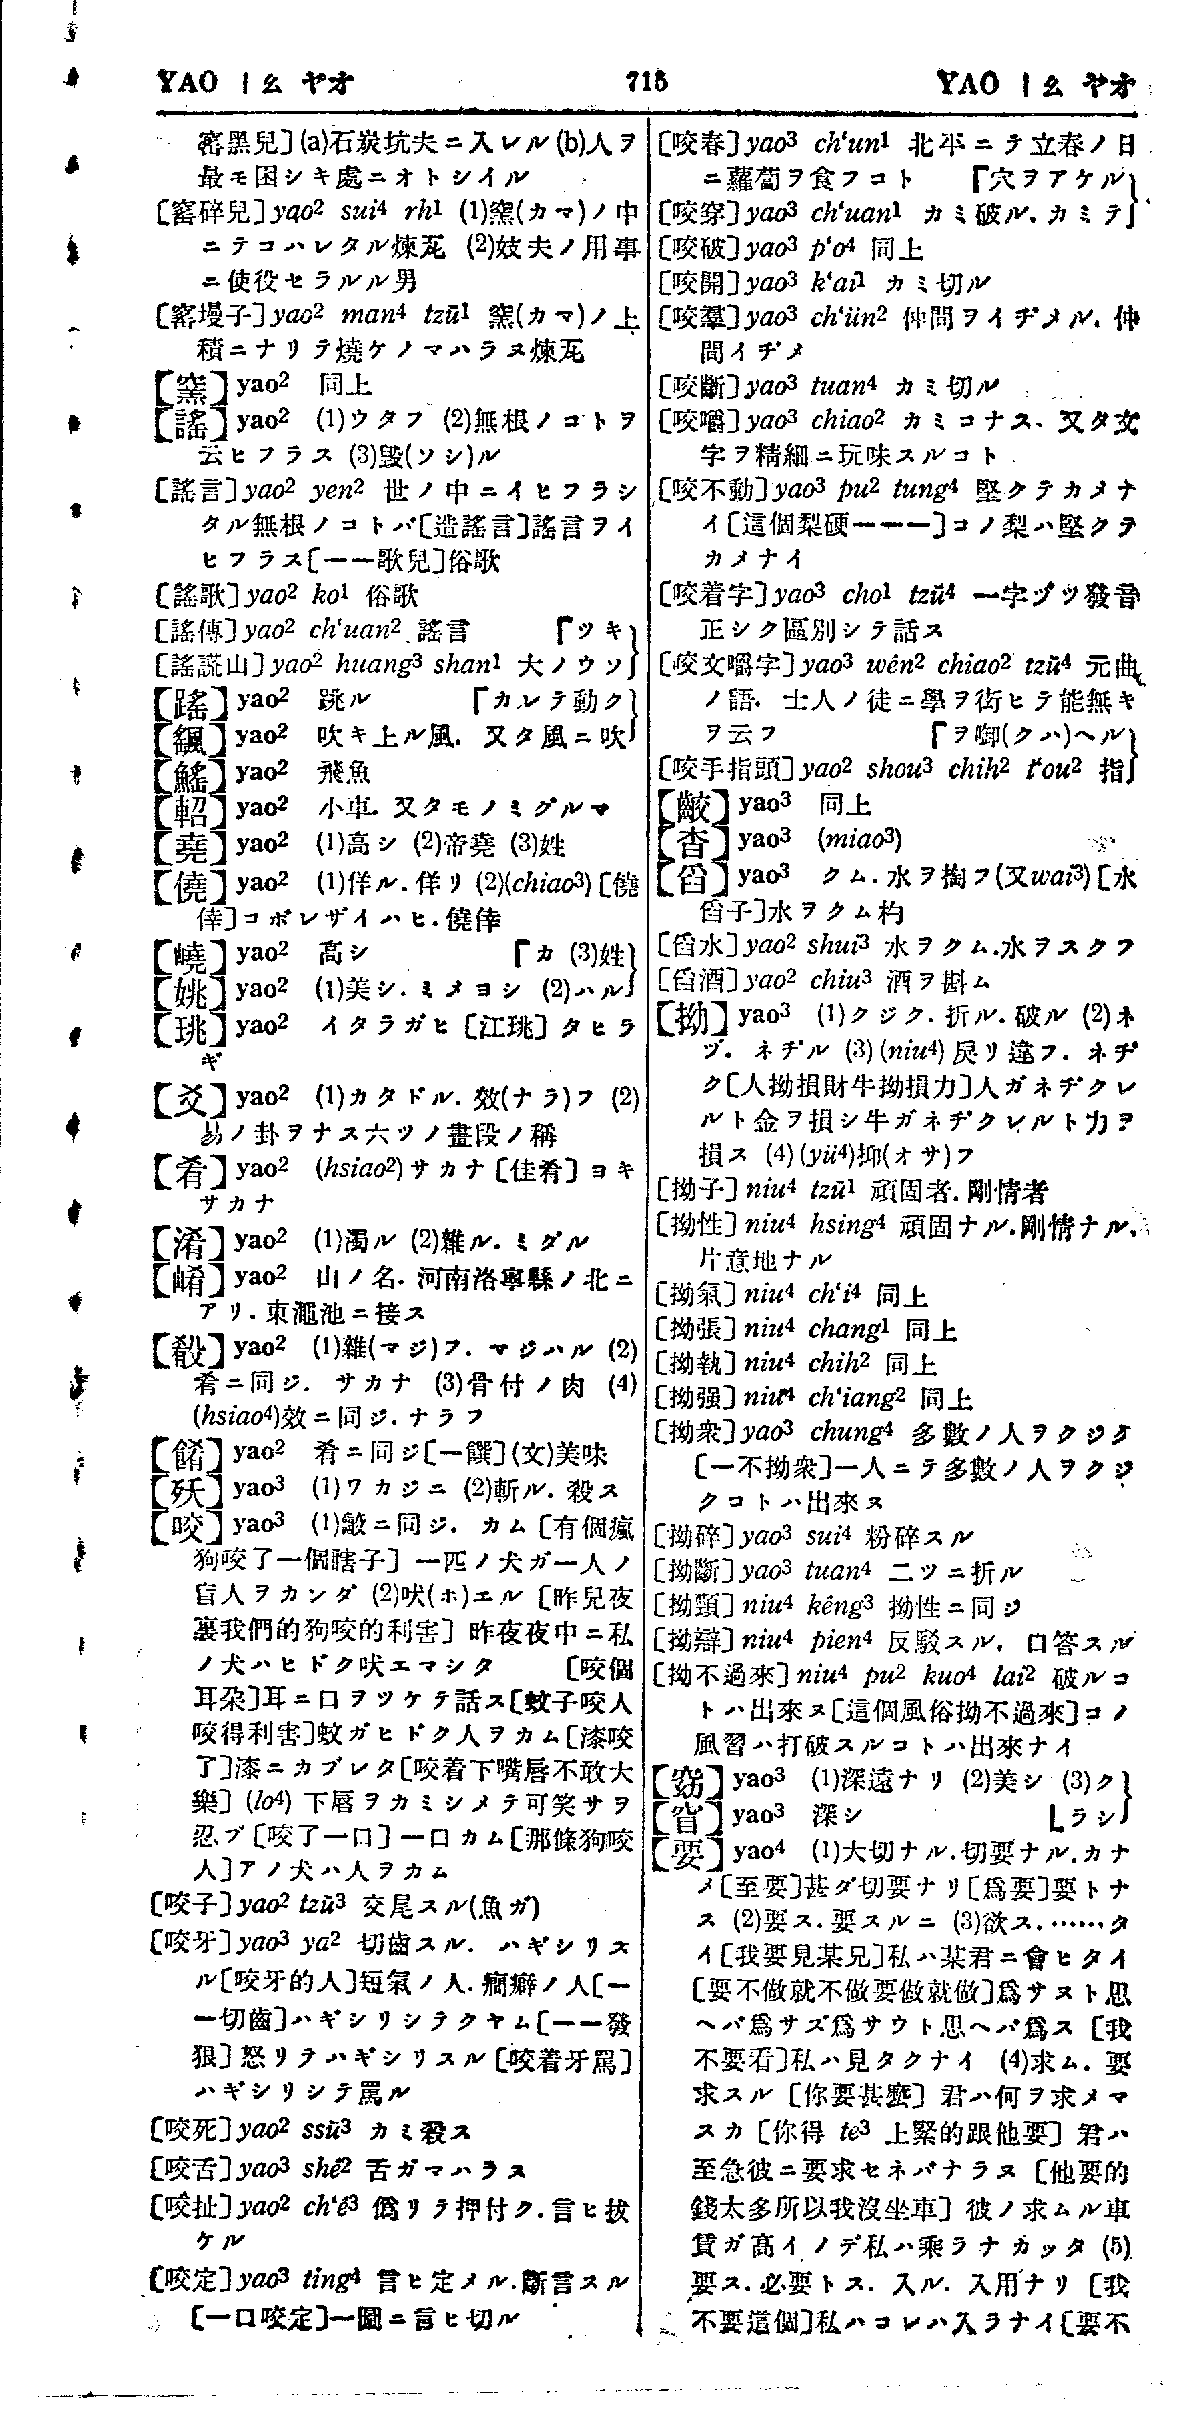 YAO ㄧㄠ ヤオ
715
YAO ㄧㄠ ヤオ
窰黑兒](a)石炭坑夫ニ入レル(b)人ヲ
最モ困シキ處ニオトシイル
[窰碎兒]yao² sui⁴ rh¹ (1)窯(カマ)ノ中
ニテコハレタル煉瓦 (2)妓夫ノ用事
ニ使役セラルル男
[窰墁子]yao² man⁴ tzŭ¹ 窯(カマ)ノ上
積ニナリテ燒ケノマハラヌ煉瓦
【窯】yao² 同上
【謠】yao² (1)ウタフ (2)無根ノコトヲ
云ヒフラス (3)毀(ソシ)ル
[謠言]yao² yen² 世ノ中ニイヒフラシ
タル無根ノコトバ[造謠言]謠言ヲイ
ヒフラス[一一歌兒]俗歌
[謠歌]yao² ko¹ 俗歌
[謠傳]yao² ch‘uan² 謠言 「ツキ
[謠謊山]yao² huang³ shan¹ 大ノウソ
【蹈】yao² 跳ル 「カレテ動ク
【颻】yao² 吹キ上ル風. 又タ風ニ吹
【鰩】yao² 飛魚
【軺】yao² 小車. 又タモノミグルマ
【堯】yao² (1)高シ (2)帝堯 (3)姓
【僥】yao² (1)佯ル.佯リ (2)(chiao³)[僥
倖]コボレザイハヒ.僥倖
【嶢】yao² 高シ 「カ (3)姓
【姚】yao² (1)美シ.ミメヨシ (2)ハル
【珧】yao² イタラガヒ[江珧]タヒラ
ギ
【爻】yao² (1)カタドル.效(ナラ)フ (2)
易ノ卦ヲナス六ツノ畫段ノ稱
【肴】yao² (hsiao²)サカナ[佳肴]ヨキ
サカナ
【淆】yao² (1)濁ル (2)雜ル.ミダル
【崤】yao² 山ノ名. 河南洛寧縣ノ北ニ
アリ.東澠池ニ接ス
【殽】yao² (1)雜(マジ)フ. マジハル (2)
肴ニ同ジ. サカナ (3)骨付ノ肉 (4)
(hsiao⁴)效ニ同ジ.ナラフ
【餚】yao² 肴ニ同ジ[一饌](文)美味
【殀】yao³ (1)ワカジニ (2)斬ル. 殺ス
【咬】yao³ (1)齩ニ同ジ. カム[有個瘋
狗咬了一個瞎子] 一匹ノ犬ガ一人ノ
盲人ヲカンダ (2)吠(ホ)エル [昨兒夜
裏我們的狗咬的利害] 昨夜夜中ニ私
ノ犬ハヒドク吠エマシタ [咬個
耳朶]耳ニ口ヲツケテ話ス[蚊子咬人
咬得利害]蚊ガヒドク人ヲカム[漆咬
了]漆ニカブレタ[咬着下嘴唇不敢大
樂] (lo⁴) 下唇ヲカミシメテ可笑サヲ
忍ブ[咬了一口]一口カム[那條狗咬
人]アノ犬ハ人ヲカム
[咬子]yao² tzŭ³ 交尾スル(魚ガ)
[咬牙]yao³ ya² 切齒スル. ハギシリス
ル[咬牙的人]短氣ノ人.癇癖ノ人[一
一切齒]ハギシリシテクヤム[一一發
狠]怒リテハギシリスル[咬着牙罵]
ハギシリシテ罵ル
[咬死]yao² ssŭ³ カミ殺ス
[咬舌]yao³ shê² 舌ガマハラヌ
[咬扯]yao² ch‘ê³ 僞リテ押付ク.言ヒ拔
ケル
[咬定]yao³ ting⁴ 言ヒ定メル.斷言スル
[一口咬定]一圖ニ言ヒ切ル
[咬春]yao³ ch‘un¹ 北平ニテ立春ノ日
ニ蘿蔔ヲ食フコト 「穴ヲアケル
[咬穿]yao³ ch‘uan¹ カミ破ル.カミテ
[咬破]yao³ p‘o⁴ 同上
[咬開]yao³ k‘ai¹ カミ切ル
[咬羣]yao³ ch‘ün² 仲間ヲイヂメル. 仲
間イヂメ
[咬斷]yao³ tuan⁴ カミ切ル
[咬嚼]yao³ chiao² カミコナス. 又タ文
字ヲ精細ニ玩味スルコト
[咬不動]yao³ pu² tung⁴ 堅クテカメナ
イ[這個梨硬一一一]コノ梨ハ堅クテ
カメナイ
[咬着字]yao³ cho¹ tzŭ⁴ 一字ヅツ發音
正シク區別シテ話ス
[咬文嚼字]yao³ wên² chiao² tzŭ⁴ 元曲
ノ語. 士人ノ徒ニ學ヲ衒ヒテ能無キ
ヲ云フ 「ヲ啣(クハ)ヘル
[咬手指頭]yao² shou³ chih² t‘ou² 指
【齩】yao³ 同上
【杳】yao³ (miao³)
【舀】yao³ クム.水ヲ掬フ(又wai³)[水
舀子]水ヲクム杓
[舀水]yao² shui³ 水ヲクム.水ヲスクフ
[舀酒]yao² chiu³ 酒ヲ斟ム
【拗】yao³ (1)クジク.折ル.破ル (2)ネ
ヅ. ネヂル (3)(niu⁴)戾リ違フ. ネヂ
ク[人拗損財牛拗損力]人ガネヂクレ
ルト金ヲ損シ牛ガネヂクレルト力ヲ
損ス (4)(yü⁴)抑(オサ)フ
[拗子]niu⁴ tzŭ¹ 頑固者.剛情者
[拗性]niu⁴ hsing⁴ 頑固ナル.剛情ナル.
片意地ナル
[拗氣]niu⁴ ch‘i⁴ 同上
[拗張]niu⁴ chang¹ 同上
[拗執]niu⁴ chih² 同上
[拗强]niu⁴ ch‘iang² 同上
[拗衆]yao³ chung⁴ 多數ノ人ヲクジク
[一不拗衆]一人ニテ多數ノ人ヲクジ
クコトハ出來ヌ
[拗碎]yao³ sui⁴ 粉碎スル
[拗斷]yao³ tuan⁴ 二ツニ折ル
[拗頸]niu⁴ kêng³ 拗性ニ同ジ
[拗辯]niu⁴ pien⁴ 反駁スル. 口答スル
[拗不過來]niu⁴ pu² kuo⁴ lai² 破ルコ
トハ出來ヌ[這個風俗拗不過來]コノ
風習ハ打破スルコトハ出來ナイ
【窈】yao³ (1)深遠ナリ (2)美シ (3)ク
【窅】yao³ 深シ 〔ラシ
【要】yao⁴ (1)大切ナル.切要ナル.カナ
メ[至要]甚ダ切要ナリ[爲要]要トナ
ス (2)要ス.要スルニ (3)欲ス.……タ
イ[我要見某兄]私ハ某君ニ會ヒタイ
[要不做就不做要做就做]爲サヌト思
ヘバ爲サズ爲サウト思ヘバ爲ス [我
不要看]私ハ見タクナイ (4)求ム. 要
求スル [你要甚麼] 君ハ何ヲ求メマ
スカ [你得 te³ 上緊的跟他要] 君ハ
至急彼ニ要求セネバナラヌ [他要的
錢太多所以我沒坐車] 彼ノ求ムル車
賃ガ高イノデ私ハ乘ラナカッタ (5)
要ス.必要トス. 入ル. 入用ナリ [我
不要這個]私ハコレハ入ラナイ[要不